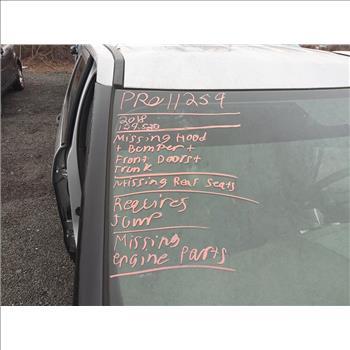 PRO11259
2018
129,520
Missing Hood
+ Bumper +
Front Doors +
Trunk
Missing Rear Seats
Requires
Jump
Missing
engine Parts